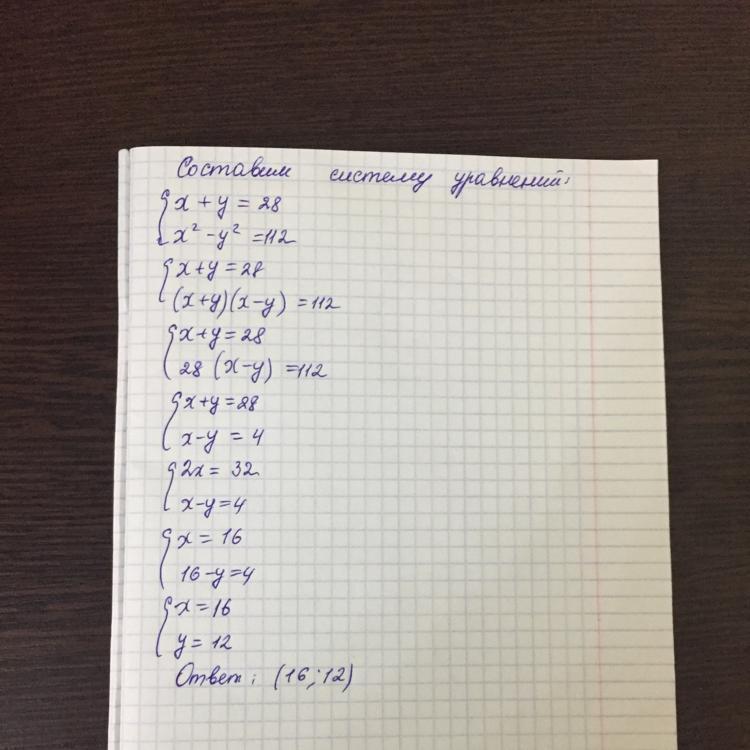 Составим систему уравнений:
x + y = 28
x² - y² = 112
x + y = 28
(x+y)(x-y) = 112
x + y = 28
28 (x-y) = 112
x+y = 28
x-y = 4
2x = 32
x-y = 4
x = 16
16-y = 4
x = 16
y = 12
Ответ: (16; 12)